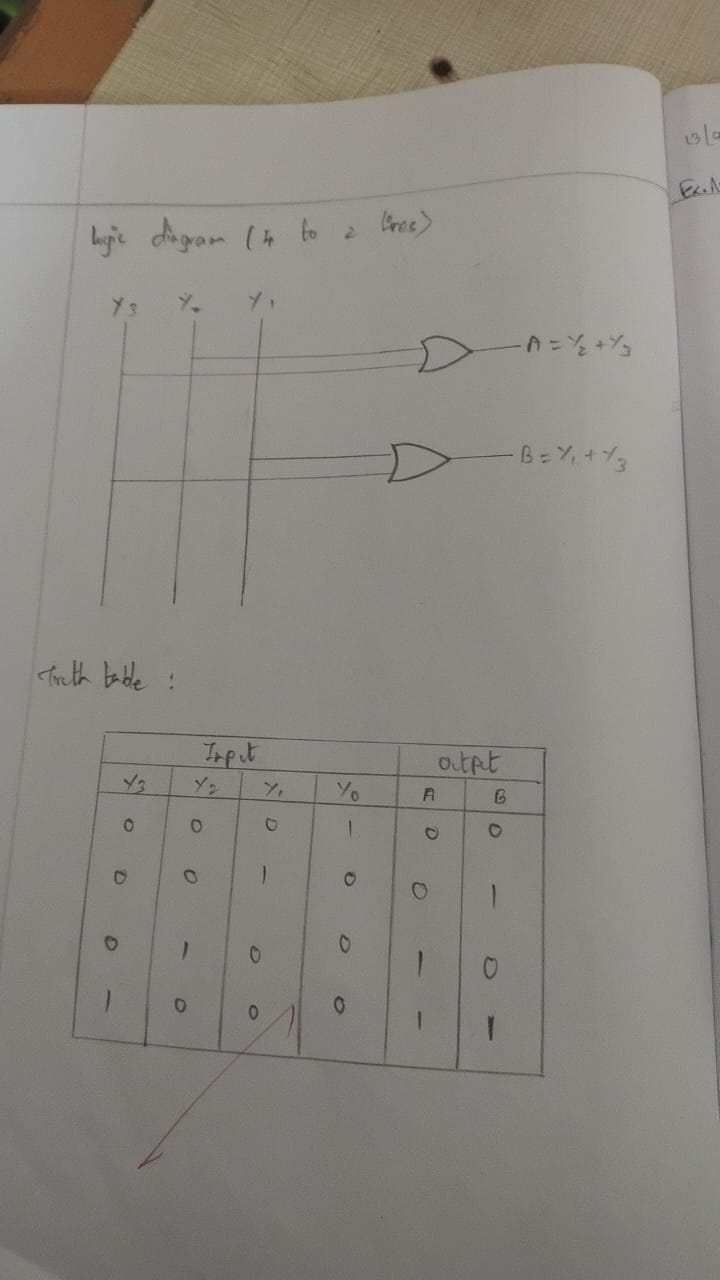 13/
Ex.N
Logic diagram (4 to 2 lines)
Y3 Y Y1
A = Y2 + Y3
B = Y1 + Y3
Truth table :
Input Output
Y3 Y2 Y1 Y0 A B
0 0 0 1 0 0
0 0 1 0 0 1
0 1 0 0 1 0
1 0 0 0 1 1